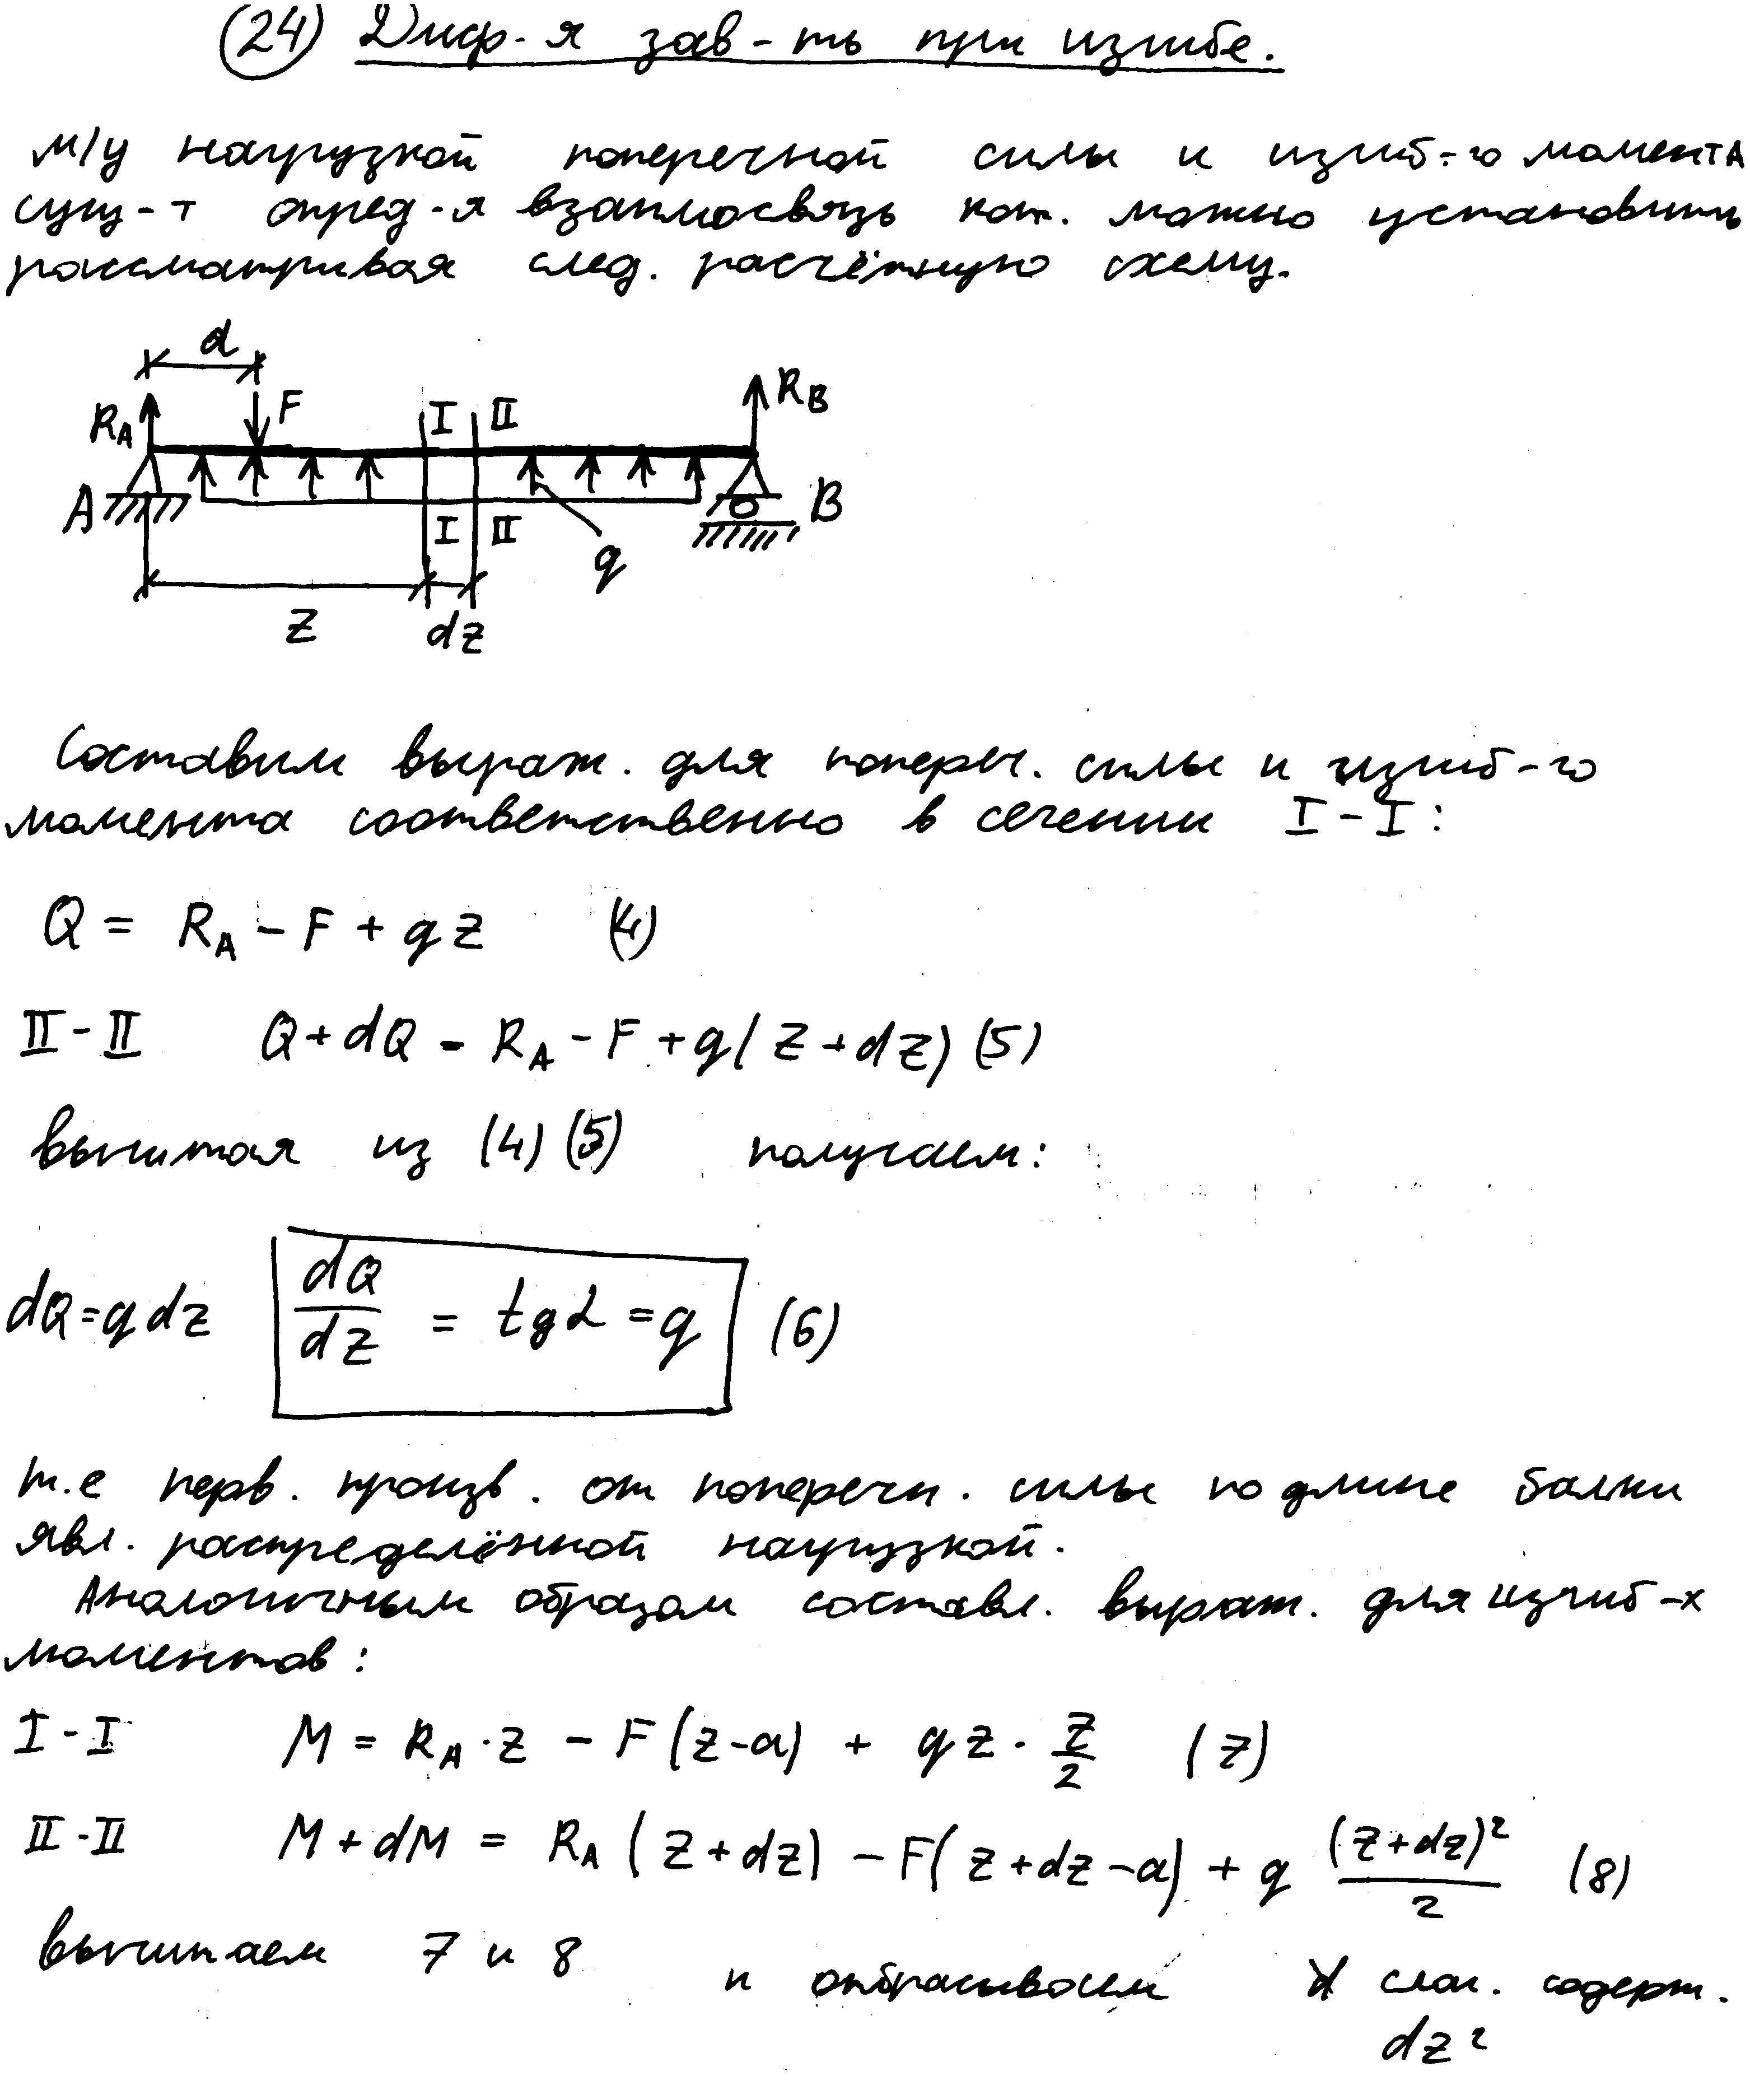 (24) Диф-я зав-ть при изгибе.
м/у нагрузкой поперечной силы и изгиб-го момента
сущ-т опред-я взаимосвязь кот. можно установить
рассматривая след. расчётную схему.
a
R_A F I II R_B
A I II B
q
z dz
Составим выраж. для попереч. силы и изгиб-го
момента соответственно в сечении I-I:
Q = R_A - F + qz (4)
II-II Q+dQ = R_A - F + q(z+dz) (5)
вычитая из (4) (5) получаем:
dQ=qdz dQ/dz = tgα = q (6)
т.е перв. произв. от поперечн. силы по длине балки
явл. распределённой нагрузкой.
Аналогичным образом составл. выраж. для изгиб-х
моментов:
I-I M = R_A·z - F(z-a) + qz·z/2 (7)
II-II M+dM = R_A(z+dz) - F(z+dz-a) + q (z+dz)²/2 (8)
вычитаем 7 и 8 и отбрасываем слаг. содерж.
dz²